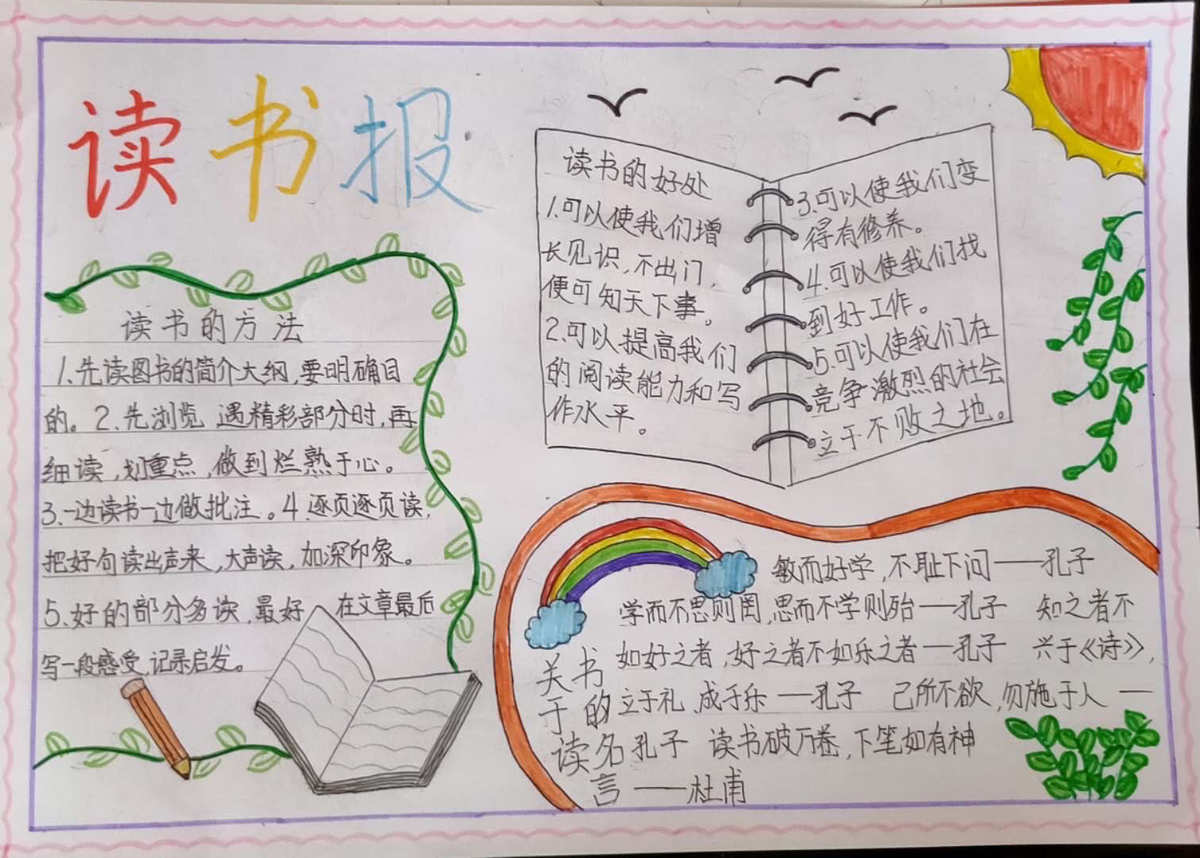 读书报
读书的方法
1.先读图书的简介大纲,要明确目
的。2.先浏览 遇精彩部分时,再
细读,划重点,做到烂熟于心。
3.一边读书一边做批注。4.逐页逐页读,
把好句读出声来,大声读,加深印象。
5.好的部分多读,最好 在文章最后
写一段感受,记录启发。
读书的好处
1.可以使我们增
长见识,不出门,
便可知天下事。
2.可以提高我们
的阅读能力和写
作水平。
3.可以使我们变
得有修养。
4.可以使我们找
到好工作。
5.可以使我们在
竞争激烈的社会
立于不败之地。
关于读书的名言
敏而好学,不耻下问——孔子
学而不思则罔,思而不学则殆——孔子 知之者不
如好之者,好之者不如乐之者——孔子 兴于《诗》,
立于礼,成于乐——孔子 己所不欲,勿施于人——
孔子 读书破万卷,下笔如有神
——杜甫